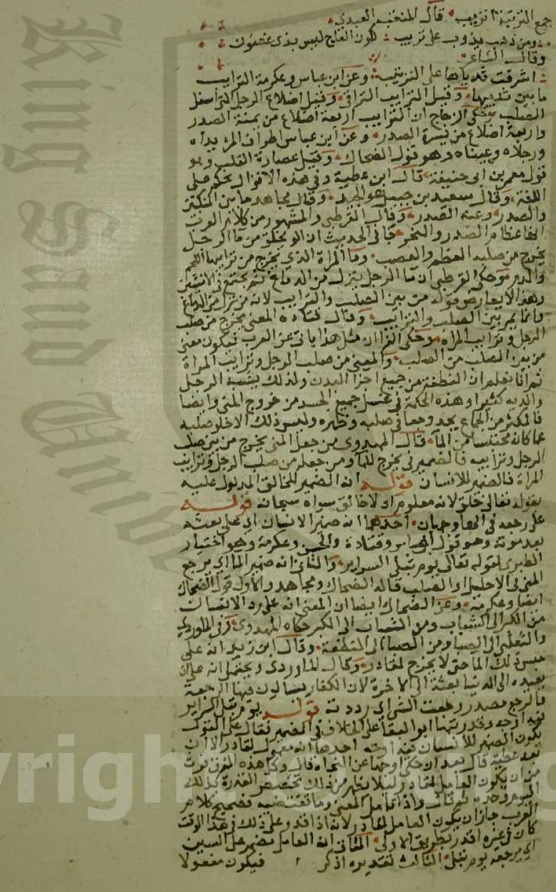 جمع التربية تريب قال المثقب العبدي
ومن ذهب يذوب على تريب كلون العاج ليس بذي غضون
وقال الشاعر
اشرقت ثدياها على التريب وعن ابن عباس وعكرمة الترايب
ما بين ثدييها وقيل الترايب التراقي وقيل اضلاع الرجل التي اسفل
الصلب وحكى الزجاج ان الترايب اربعة اضلاع من يمنة الصدر
واربعة اضلاع من يسرة الصدر وعن ابن عباس اطراف المرء يداه
ورجلاه وعيناه وهو قول الضحاك وقيل عصارة القلب وهو
قول معمر بن ابي حنيفة قال ابن عطية وفي هذه الاقوال تحكم على
اللغة وقال سعيد بن جبير هو الجيد وقال مجاهد ما بين المنكبين
والصدر وعنه الصدر وقال القرطبي والمشهور من كلام العرب
انها عظام الصدر والنحر جاء في الحديث ان الولد يخلق من ماء الرجل
يخرج من صلبه العظم والعصب وماء المراة الذي يخرج من ترايبها اللحم
والدم وحكى القرطبي ان ماء الرجل ينزل من الدماغ ثم يجتمع في الانثيين
وهذا لا يعارض قوله من بين الصلب والترايب لانه ان نزل من الدماغ
فانما يمر بين الصلب والترايب وقال قتادة المعنى يخرج من صلب
الرجل وترايب المراه وحكى الفرا ان مثل هذا ياتي عن العرب فيكون معنى
من بين الصلب من الصلب والمعنى من صلب الرجل وترايب المراة
ثم انا نعلم ان النطفة من جميع اجزا البدن ولذلك يشبه الرجل
والديه كثيرا وهذه الحكمة في غسل جميع الجسد من خروج المني وايضا
فالمكثر من الجماع يجد وجعا في صلبه وظهره وليس ذلك الا لخلو صلبه
عما كان محتبسا من الماء قال المهدوي من جعل المني يخرج من بين صلب
الرجل وترايبه فالضمير في يخرج للماء ومن جعله من صلب الرجل وترايب
المراة فالضمير للانسان قوله انه الضمير للخالق المدلول عليه
بقوله تعالى خلق لانه معلوم ان لا خالق سواه سبحانه قوله
على رجعه في الهاء وجهان احدهما انه ضمير الانسان اي على بعثه
بعد موته وهو قول ابن عباس وقتادة والحسن وعكرمة وهو اختيار
الطبري لقوله تعالى يوم تبلى السراير والثاني انه ضمير الماء اي يرجع
المني في الاحليل او الصلب قاله الضحاك ومجاهد والاول قول الضحاك
ايضا وعكرمة وعن الضحاك ايضا ان المعنى انه على رد الانسان
من الكبر الى الشباب ومن الشباب الى الكبر حكاه المهدوي وفي الماوردي
والثعلبي الى الصبا ومن الصبا الى النطفة وقال ابن زيد انه على
حبس ذلك الما حتى لا يخرج لقادر وقال الماوردي ويحتمل انه على ان
يعيده الى الدنيا بعد بعثه الى الاخرة لان الكفار يسالون فيها الرجعة
فالرجع مصدر رجعت الشي اي رددته قوله يوم تبلى السراير
فيه اوجه وقد رتبها ابو البقا على الخلاف في الضمير فقال على القول
يكون الضمير للانسان فيه اوجه احدها انه معمول لقادر الا ان
ابن عطية قال بعد ان حكى اوجها عن النحاة قال وكل هذه الفرق فرت
من ان يكون العامل لقادر لئلا يظهر من ذلك تخصيص القدرة بذلك
اليوم وحده ثم قال واذا تومل المعنى وما يقتضيه فصيح كلام
العرب جاز ان يكون العامل لقادر لانه اذا قدر على ذلك في هذا الوقت
كان في غيره اقدر بطريق الاولى الثاني ان العامل مضمر على التبيين
اي يرجعه يوم تبلى الثالث تقديره اذكر فيكون مفعولا
King Saud University